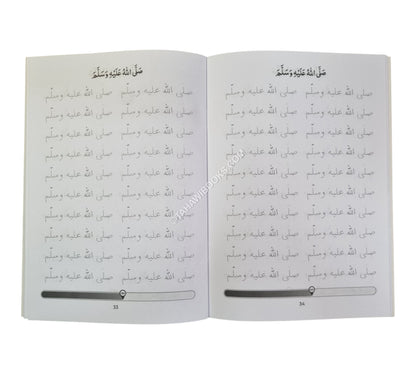 صَلَّى اللهُ عَلَيْهِ وَسَلَّمَ
صلى الله عليه وسلّم صلى الله عليه وسلّم
صلى الله عليه وسلّم صلى الله عليه وسلّم
صلى الله عليه وسلّم صلى الله عليه وسلّم
صلى الله عليه وسلّم صلى الله عليه وسلّم
صلى الله عليه وسلّم صلى الله عليه وسلّم
صلى الله عليه وسلّم صلى الله عليه وسلّم
صلى الله عليه وسلّم صلى الله عليه وسلّم
صلى الله عليه وسلّم صلى الله عليه وسلّم
صلى الله عليه وسلّم صلى الله عليه وسلّم
صلى الله عليه وسلّم صلى الله عليه وسلّم
33
صَلَّى اللهُ عَلَيْهِ وَسَلَّمَ
صلى الله عليه وسلّم صلى الله عليه وسلّم
صلى الله عليه وسلّم صلى الله عليه وسلّم
صلى الله عليه وسلّم صلى الله عليه وسلّم
صلى الله عليه وسلّم صلى الله عليه وسلّم
صلى الله عليه وسلّم صلى الله عليه وسلّم
صلى الله عليه وسلّم صلى الله عليه وسلّم
صلى الله عليه وسلّم صلى الله عليه وسلّم
صلى الله عليه وسلّم صلى الله عليه وسلّم
صلى الله عليه وسلّم صلى الله عليه وسلّم
صلى الله عليه وسلّم صلى الله عليه وسلّم
34
TAHAWIBOOKS.COM